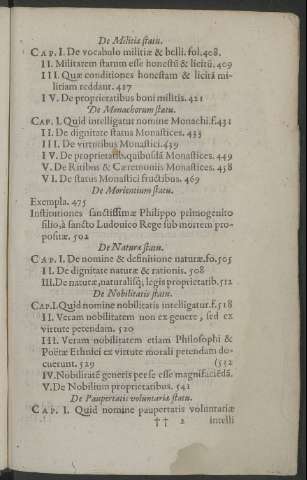 De Militiæ statu.
CAP. I. De vocabulo militiæ & belli. fol. 408.
II. Militarem statum esse honestū & licitū. 409
III. Quæ conditiones honestam & licitā mi-
litiam reddant. 417
IV. De proprietatibus boni militis. 421
De Monachorum statu.
CAP. I. Quid intelligatur nomine Monachi. f. 431
II. De dignitate status Monastices. 433
III. De virtutibus Monastici. 439
IV. De proprietatib. quibusdā Monastices. 449
V. De Ritibus & Cæremoniis Monastices. 458
VI. De status Monastici fructibus. 469
De Morientium statu.
Exempla. 475
Institutiones sanctissimæ Philippo primogenito
filio, à sancto Ludouico Rege sub mortem pro-
positæ. 502
De Naturæ statu.
CAP. I. De nomine & definitione naturæ. fo. 505
II. De dignitate naturæ & rationis. 508
III. De naturæ, naturalisq; legis proprietatib. 512
De Nobilitatis statu.
CAP. I. Quid nomine nobilitatis intelligatur. f. 518
II. Veram nobilitatem non ex genere, sed ex
virtute petendam. 520
III. Veram nobilitatem etiam Philosophi &
Poëtæ Ethnici ex virtute morali petendam do-
cuerunt. 529 (532
IV. Nobilitatē generis per se esse magnifaciēdā.
V. De Nobilium proprietatibus. 541
De Paupertatis voluntariæ statu.
CAP. I. Quid nomine paupertatis voluntariæ
†† 2 intelli